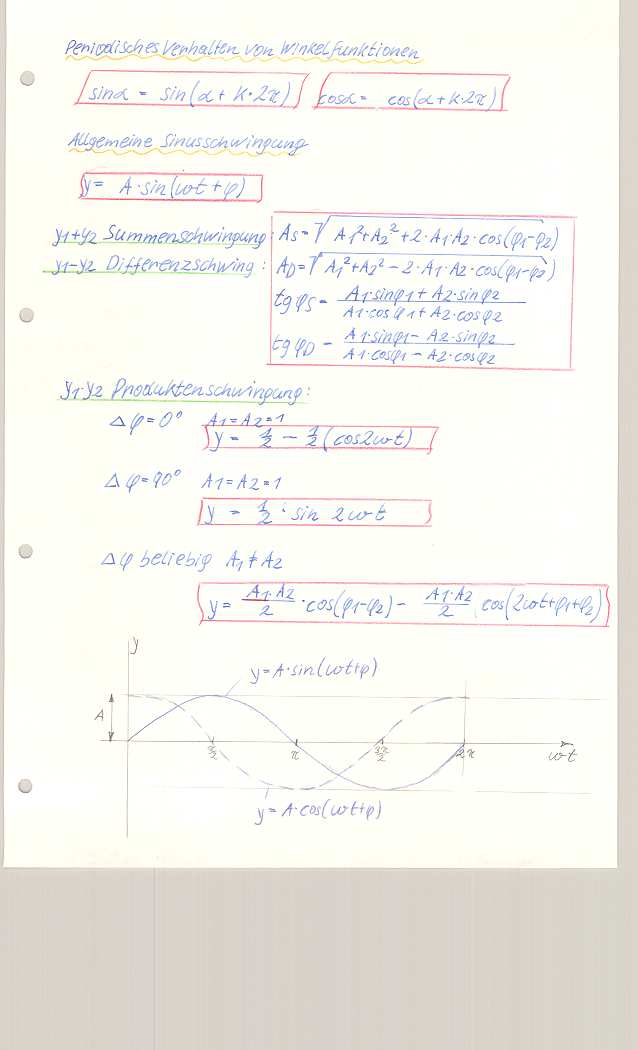 Periodisches Verhalten von Winkelfunktionen
sinα = sin(α + K·2π) cosα = cos(α + K·2π)
Allgemeine Sinusschwingung
y = A·sin(ωt + φ)
y1+y2 Summenschwingung: As = √A1²+A2²+2·A1·A2·cos(φ1-φ2)
y1-y2 Differenzschwing: AD = √A1²+A2²-2·A1·A2·cos(φ1-φ2)
tgφS = A1·sinφ1 + A2·sinφ2 / A1·cosφ1 + A2·cosφ2
tgφD = A1·sinφ1 - A2·sinφ2 / A1·cosφ1 - A2·cosφ2
y1·y2 Produktenschwingung:
Δφ=0° A1=A2=1
y = 1/2 - 1/2 (cos2ωt)
Δφ=90° A1=A2=1
y = 1/2 · sin 2ωt
Δφ beliebig A1 ≠ A2
y = A1·A2/2 · cos(φ1-φ2) - A1·A2/2 · cos(2ωt+φ1+φ2)
y
y = A·sin(ωt+φ)
A
π/2 π 3π/2 2π ωt
y = A·cos(ωt+φ)